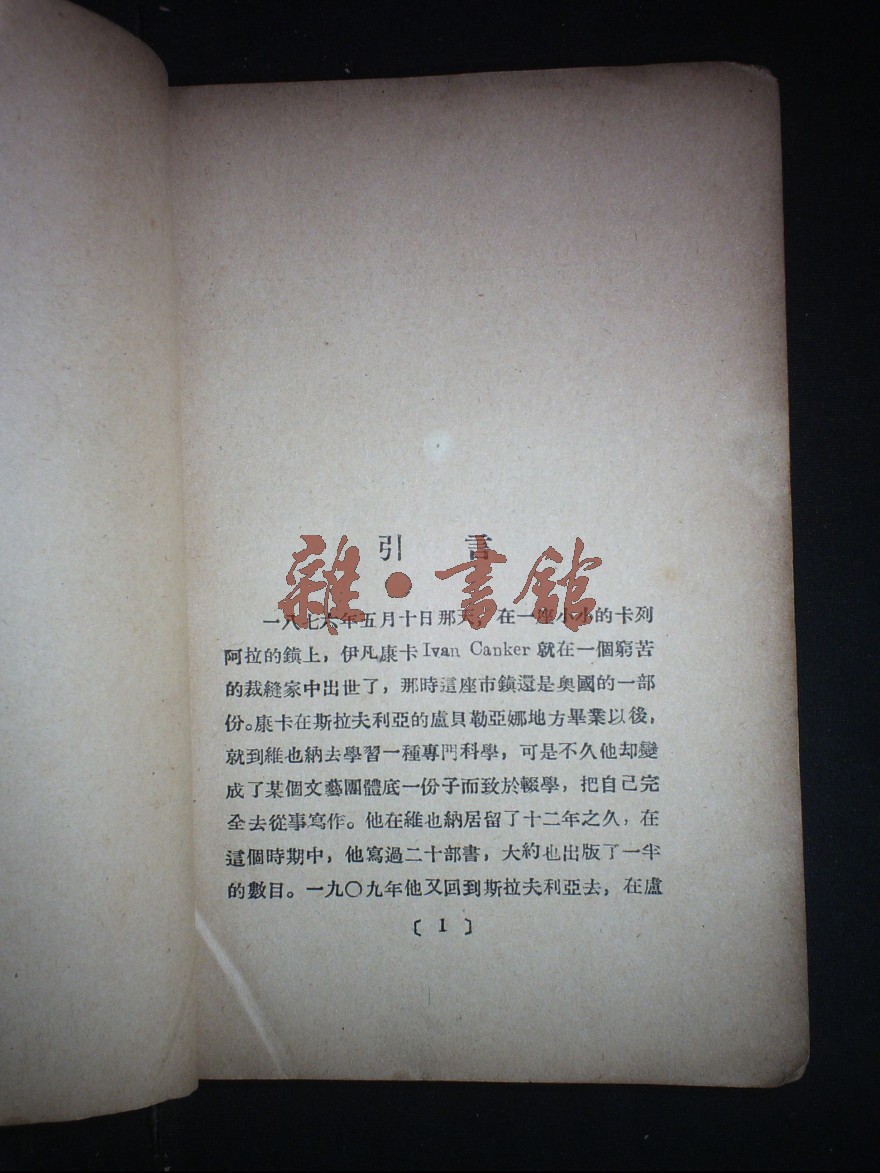 引 言
雜·書館
一八七六年五月十日那天，在一座小小的卡列
阿拉的鎮上，伊凡康卡Ivan Canker就在一個窮苦
的裁縫家中出世了，那時這座市鎮還是奧國的一部
份。康卡在斯拉夫利亞的盧貝勒亞娜地方畢業以後，
就到維也納去學習一種專門科學，可是不久他却變
成了某個文藝團體底一份子而致於輟學，把自己完
全去從事寫作。他在維也納居留了十二年之久，在
這個時期中，他寫過二十部書，大約也出版了一半
的數目。一九〇九年他又回到斯拉夫利亞去，在盧
〔 1 〕